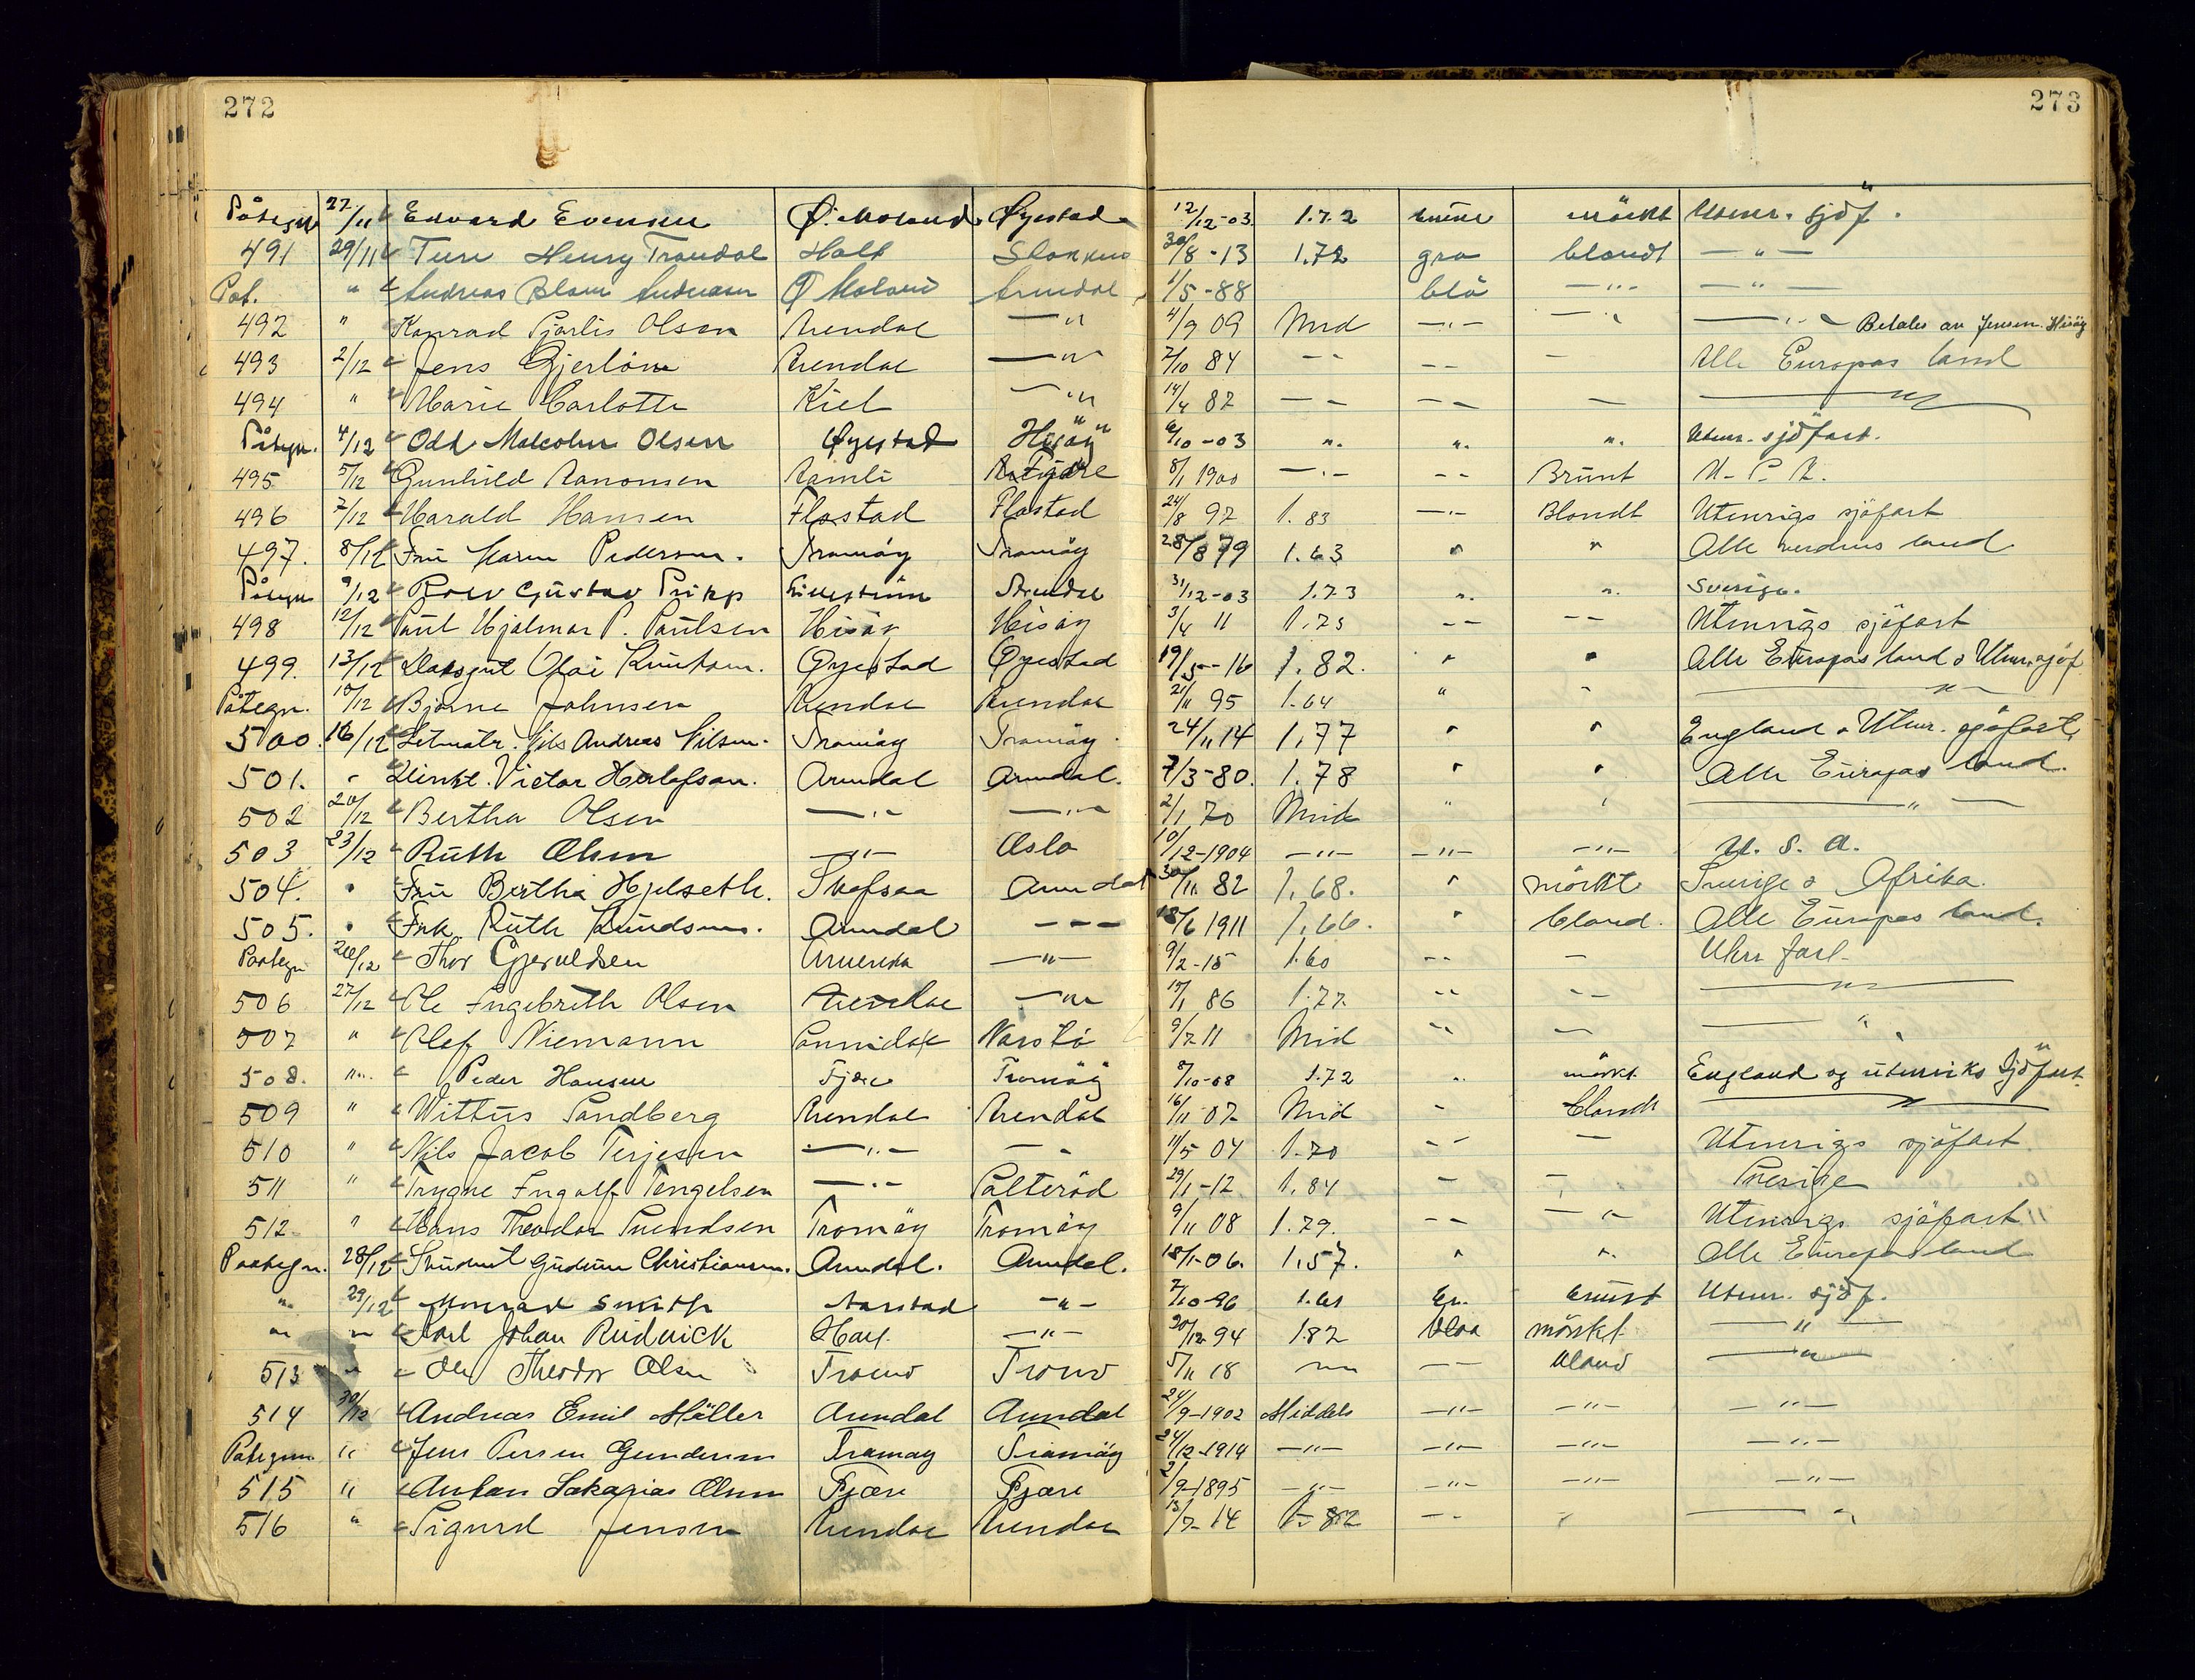 272 273
Påtegn 27/11 Edvard Evensen Ø. Moland Øyestad 12/12-03 1.72 brune mörkt Utenr. sjöf.
491 29/11 Ture Henry Trondal Holt 30/8-13 1.72 gra blondt —"—
Pat. " Andreas Ø Moland Arendal 1/5-88 blå —"— —"—
492 " Konrad Olsen Arendal —"— 4/9 09 Mid —"— —"— —"— Betales av Jensen. Hisöy
493 2/12 Jens Arendal —"— 2/10 84 -- -- — Alle Europas land
494 " Marie Carlotte Kiel —"— 14/4 87 -- -- — —"—
Påtegn. 4/12 Odd Malcolm Olsen Øyestad Hisöy 6/10-03 ". ". ". Utenr. sjöfart.
495 5/12 Gunhild Aanonsen Aamli Fjære 8/1 1900 —"— -- Brunt
496 7/12 Harald Hansen Flostad Flostad 24/8 97 1.83 —"— Blondt Utenrigs sjöfart
497. 8/12 Fru Karen Pedersen. Tromöy Tromöy 28/8 79 1.63 " " Alle verdens land
Påtegn 9/12 Rolv Gustav Arendal 31/12-03 1.73 ". ". Sverige.
498 12/12 Paul Hjalmar P. Paulsen Hisöy Hisöy 3/4 11 1.75 -- -- Utenrigs sjöfart
499. 13/12 Olai Knutsen. Øyestad Øyestad 19/5-16 1.82. " " Alle Europas land o Utenr. sjöf.
Påtegn. 15/12 Bjarne Johnsen Arendal Arendal 21/11 95 1.64 " " —"—
500. 16/12 Nils Andreas Nilsen. Tromöy Tromöy. 24/11 14 1,77 " " England o Utenr. sjöfart.
501. " Victor Herlofson. Arendal Arendal. 7/3-80. 1.78 " " Alle Europas land.
502 20/12 Bertha Olsen —"— —"— 2/1 70 Mid " " —"—
503 23/12 Ruth Olsen —"— Oslo 10/12-1904 —"— —"— —"— U. S. A.
504. " Fru Bertha Hjelseth. Arendal 30/11 82 1,68. " mörkt Sverige o Afrika.
505. " Frk Ruth Knudsen. Arendal --- 18/6 1911 1,66. " blond. Alle Europas land.
Paategn 26/12 Thor Gjeruldsen Amerika —"— 9/2-15 1.60 -- —
506 27/12 Ole Ingebreth Olsen Arendal —"— 17/1 86 1.77 -- -- —"—
507 " Olof Niemann Sannidal 9/7 11 Mid -- — —"—
508. " Peder Hansen Fjære Tromöy 8/10-08 1.72 " mörkt England og utenriks Sjöfart.
509 " Wittus Sandberg Arendal Arendal 16/11 07 Mid - blondt —"—
510 " Nils Jacob Terjesen —"— -- 11/5 04 1.70 -- — Utenrigs sjöfart
511 " Trygve Ingolf Tengelsen —"— Salteröd 29/1-12 1.84 - — Sverige
512 " Hans Theodor Svendsen Tromöy Tromöy 9/11 08 1.79. -- —"— Utenrigs sjöfart
Paategn. 28/12 Student Gudrun Christiansen. Arendal. Arendal. 18/1-06. 1,57. " ". Alle Europas land
" 29/12 Monrad Smith —"— 7/10-96 1.61 br. brunt Utenr. sjöf.
" " Karl Johan Rudnick —"— 20/12-94 1.82 blaa mörkt —"—
513 " Ole Theodor Olsen Tromö Tromö 5/11 18 " -- blond —"—
514 30/12 Andreas Emil Möller Arendal Arendal 24/9-1902 Middels —"— —"— —"—
Påtegnn " Jens Persen Gundersen Tromöy Tromöy 24/12-1914 —"— —"— —"— —"—
515 " Anton Sakarias Olsen Fjære Fjære 2/9-1895 —"— —"— —"— —"—
516 " Sigurd Jensen Arendal Arendal 13/7-14 1-82 -- " —"—